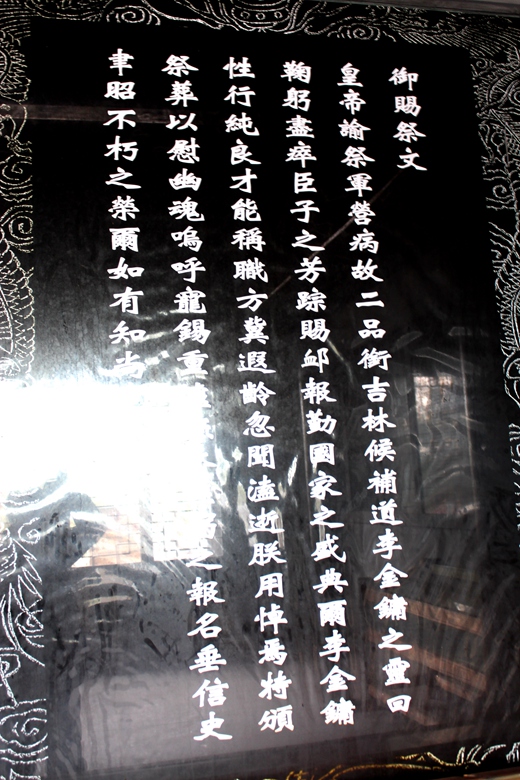 御賜祭文
皇帝諭祭軍營病故二品銜吉林候補道李金鏞之靈曰
鞠躬盡瘁臣子之芳踪賜卹報勤國家之盛典爾李金鏞
性行純良才能稱職方冀遐齡忽聞溘逝朕用悼焉特頒
祭葬以慰幽魂嗚呼寵錫重 之報名垂信史
聿昭不朽之榮爾如有知尚